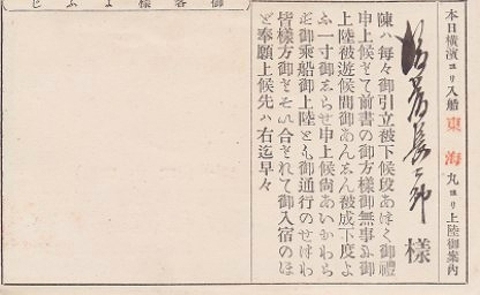 本日横濱ヨリ入船 東海丸ヨリ上陸御案内
長二郎 様
陳ハ毎々御引立被下候段あつく御禮
申上候そて前書の御方様御無事ふ御
上陸被遊候間御あんゑん被成下度よ
ふ一寸御ゑらせ申上候尚あいかわら
ど御乗船御上陸とも御通行のせばわ
皆様方御そそい合されて御入宿のほ
ど奉願上候先ハ右迄早々
御客様